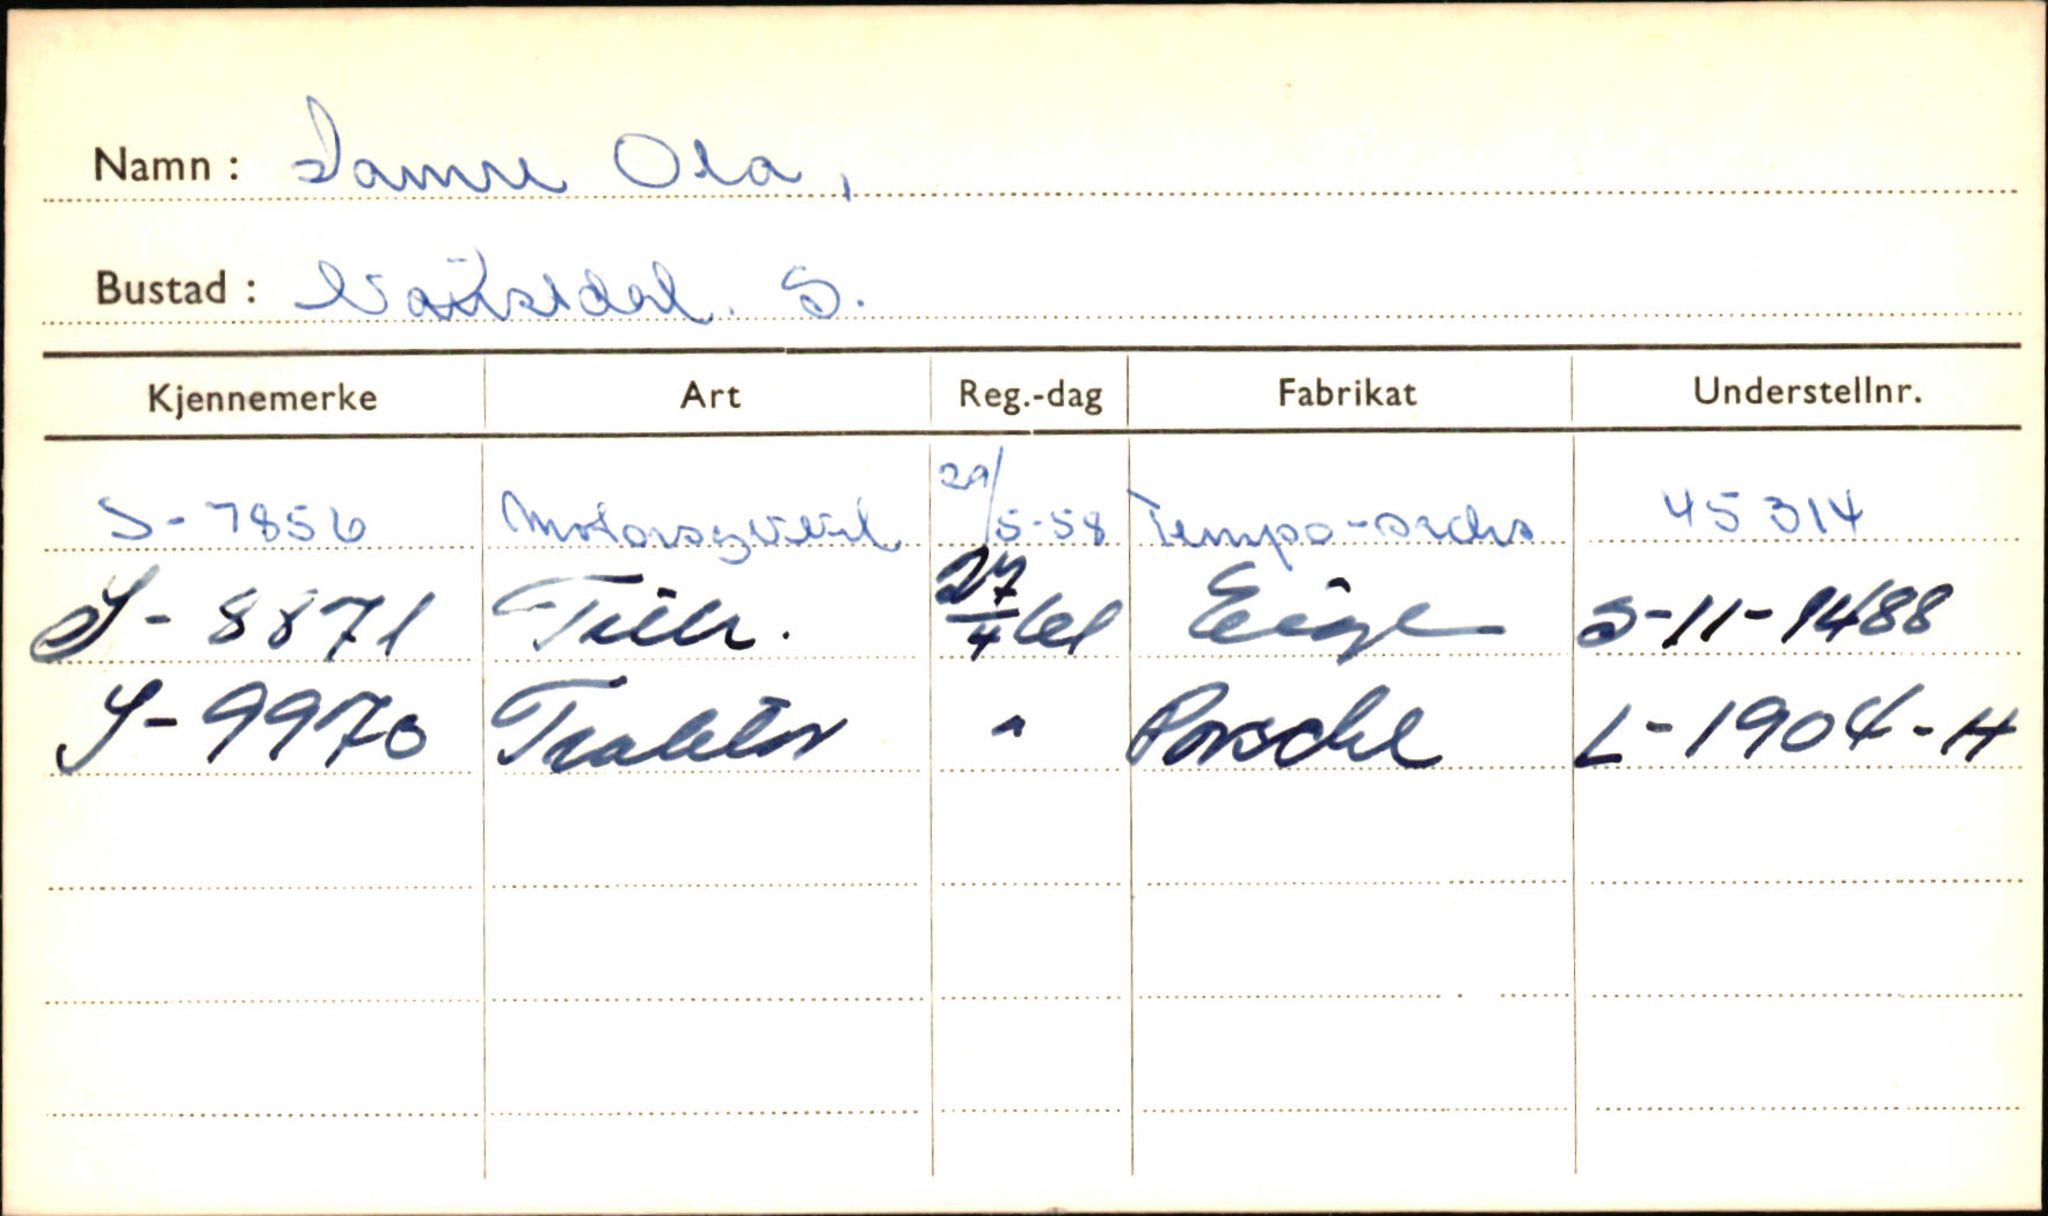 Namn : Samre Ola,
Bustad : Naustdal. S.
Kjennemerke Art Reg.-dag Fabrikat Understellnr.
S-7856 Motorsykkel 29/5-58 Tempo-sachs 45314
S-8871 Tilh. 27/4 61 Eige S-11-1488
S-9970 Traktor " Porsche L-1904-H